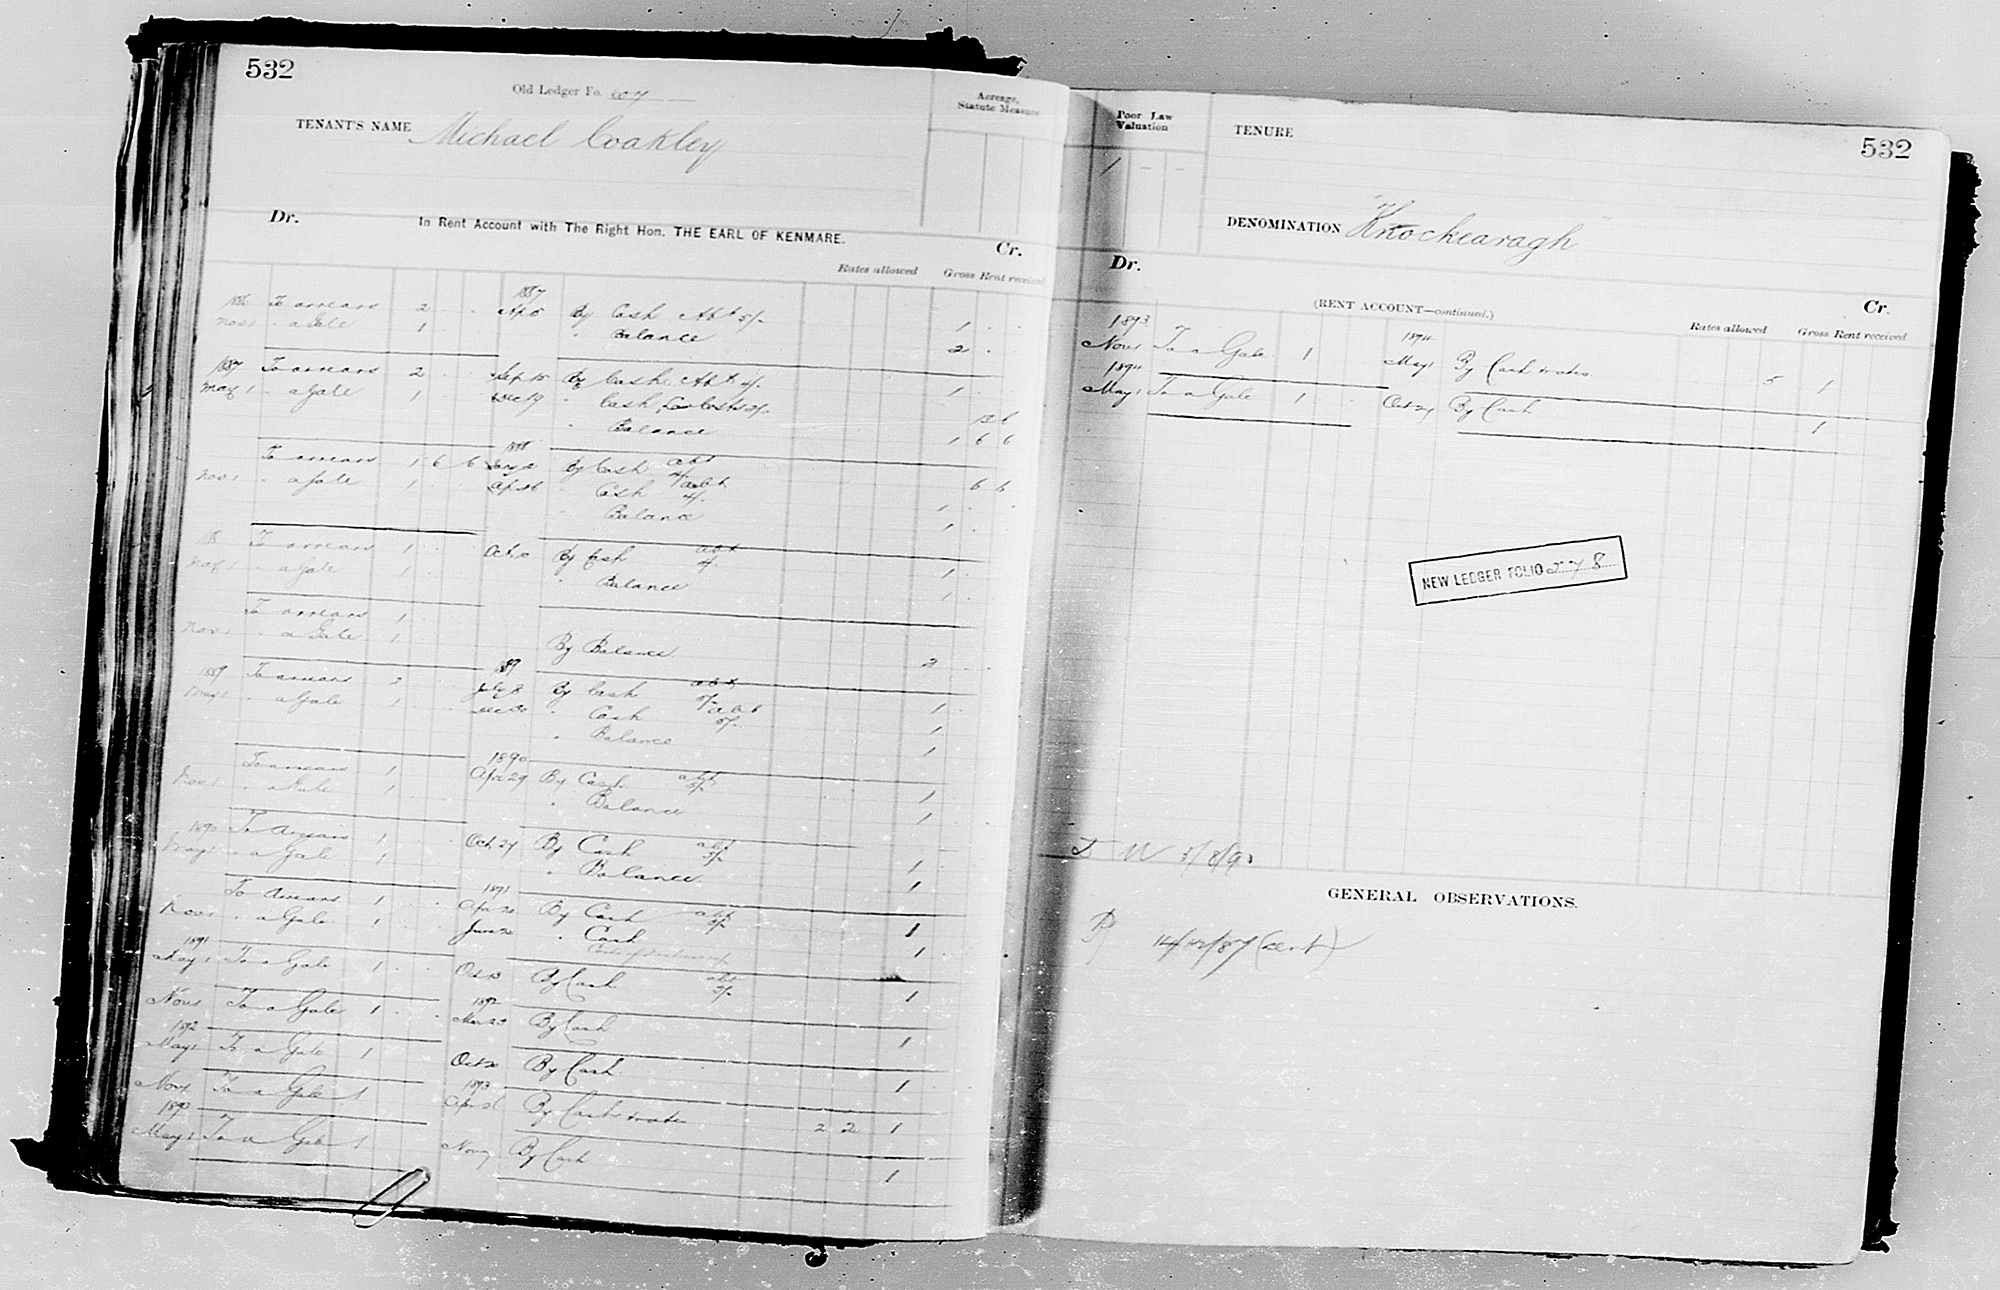 532
Old Ledger Fo. 607
Acreage, Statute Measure
TENANT'S NAME Michael Coakley
Dr. In Rent Account with The Right Hon. THE EARL OF KENMARE. Cr.
Rates allowed Gross Rent received
1887
1886 To arrears 2 By Cash Abt 5/-. 1
Nov 1 " a Gale 1 " Balance 2
1887 To arrears 2 Sep 15 By Cash Abt 1
May 1 " a Gale 1 Dec 19 " Cash 13 6
" Balance 1 6 6
1888
To arrears 1 6 6 By Cash abt 6 6
Nov 1 " a Gale 1 Ap 26 " Cash abt 1
" Balance 1
To arrears 1 Oct By Cash abt 1
May 1 " a Gale 1 " Balance 1
To arrears 1
Nov 1 " a Gale 1 By Balance 2
1889 To arrears 2 July 8 By Cash abt 5/- 1
May 1 " a Gale 1 Dec 30 " Cash abt 5/- 1
" Balance 1
1890
To arrears 1 Apr 29 By Cash abt 5/- 1
Nov 1 " a Gale 1 " Balance 1
1890 To Arrears 1 Oct 27 By Cash abt 5/- 1
May 1 " a Gale 1 " Balance 1
1891
To Arrears 1 Apr 20 By Cash abt 5/- 1
Nov 1 " a Gale 1 June 20 " Cash 1
1891
May 1 To a Gale 1 Oct 13 By Cash abt 5/- 1
1892
Nov 1 To a Gale 1 Mar 23 By Cash 1
1892
May 1 To a Gale 1 Oct 20 By Cash 1
1893
Nov 1 To a Gale 1 Apr 26 By Cash & rates 2 2 1
1893
May 1 To a Gale 1 Nov By Cash 1
Poor Law Valuation
TENURE
532
DENOMINATION Knockearagh
Dr. (RENT ACCOUNT—continued.) Cr.
Rates allowed Gross Rent received
1893 1894
Nov 1 To a Gale 1 May 1 By Cash & rates 5 1
1894
May 1 To a Gale 1 Oct 27 By Cash 1
NEW LEDGER FOLIO 278
GENERAL OBSERVATIONS.
14/12/87 (cert)